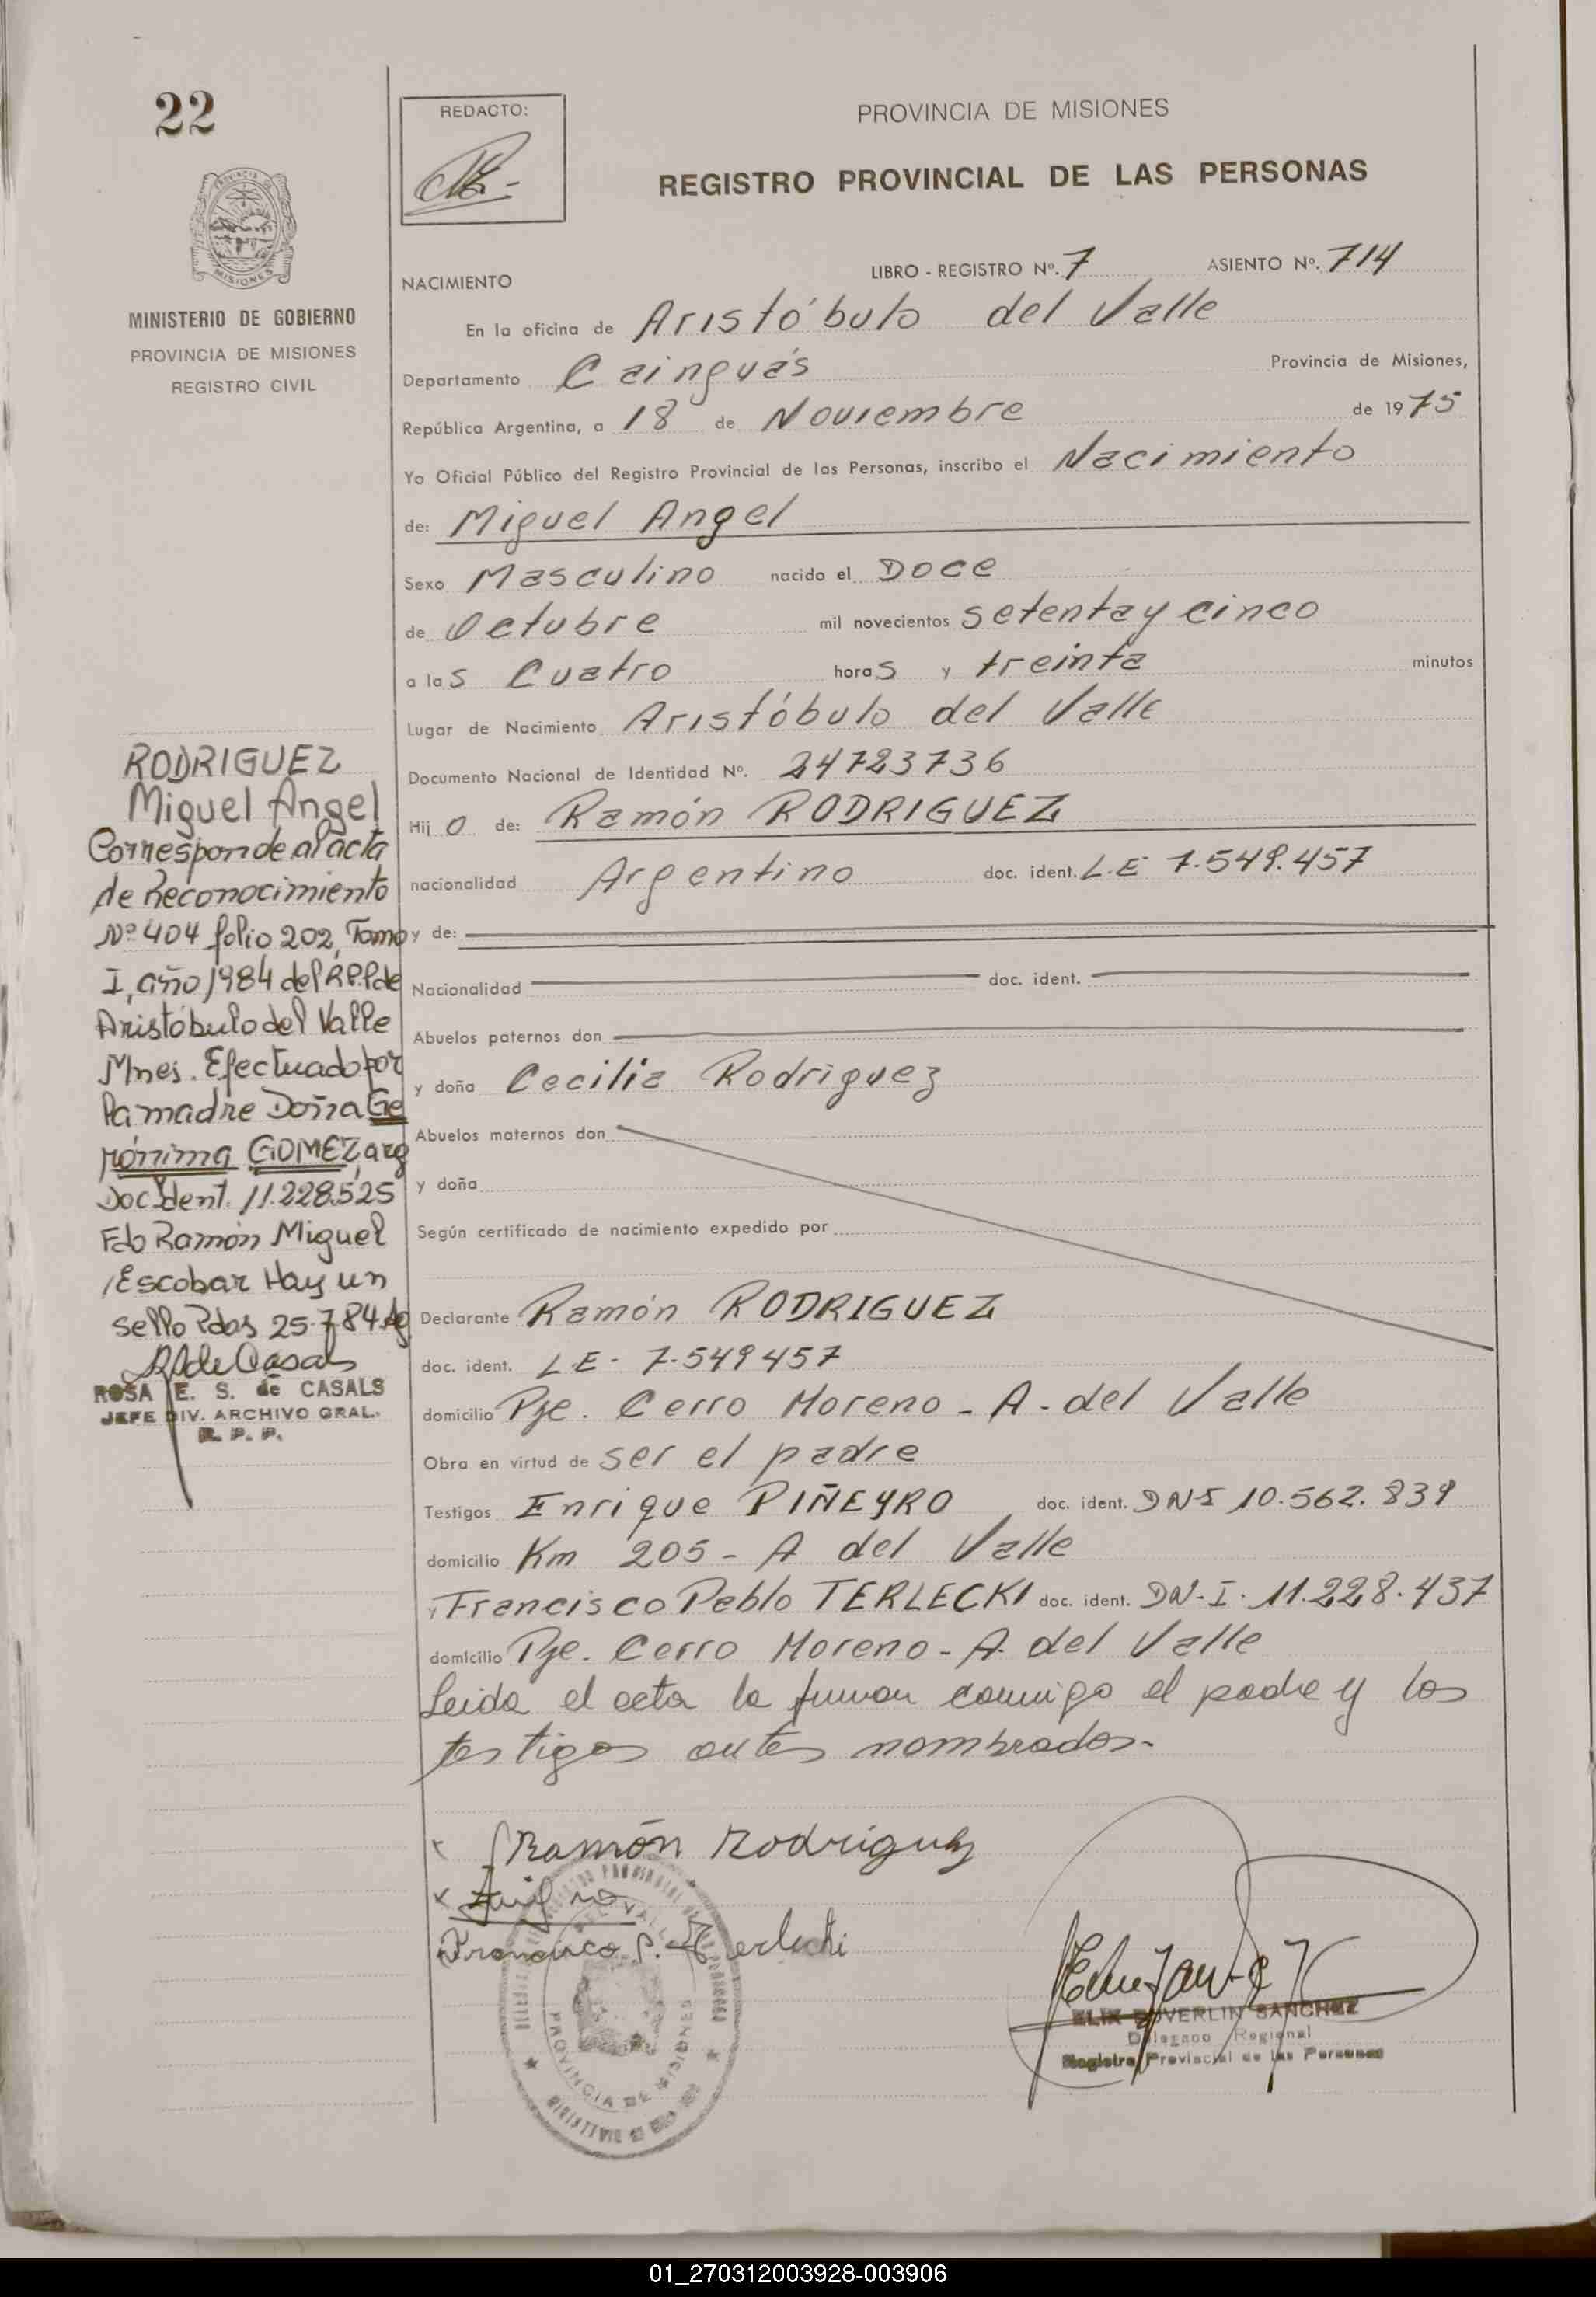 22
REDACTO:
PROVINCIA DE MISIONES
REGISTRO PROVINCIAL DE LAS PERSONAS
MISIONES
MINISTERIO DE GOBIERNO
PROVINCIA DE MISIONES
REGISTRO CIVIL
NACIMIENTO
LIBRO - REGISTRO Nº. 7 ASIENTO Nº. 714
En la oficina de Aristóbulo del Valle
Departamento Cainguás Provincia de Misiones,
República Argentina, a 18 de Noviembre de 1975
Yo Oficial Público del Registro Provincial de las Personas, inscribo el Nacimiento
de: Miguel Angel
Sexo Masculino nacido el Doce
de Octubre mil novecientos setenta y cinco
a las Cuatro horas y treinta minutos
Lugar de Nacimiento Aristóbulo del Valle
Documento Nacional de Identidad Nº. 24723736
Hijo de: Ramón RODRIGUEZ
nacionalidad Argentino doc. ident. L.E 7.549.457
y de:
Nacionalidad doc. ident.
Abuelos paternos don
y doña Cecilia Rodriguez
Abuelos maternos don
y doña
Según certificado de nacimiento expedido por
Declarante Ramón RODRIGUEZ
doc. ident. LE- 7.549457
domicilio Pje. Cerro Moreno - A - del Valle
Obra en virtud de ser el padre
Testigos Enrique PIÑEYRO doc. ident. DN-I 10.562.839
domicilio Km 205 - A del Valle
y Francisco Pablo TERLECKI doc. ident. DN-I. 11.228.437
domicilio Pje. Cerro Moreno - A. del Valle
Leida el acta la firman conmigo el padre y los
testigos antes nombrados.-
RODRIGUEZ
Miguel Angel
Corresponde al acta
de Reconocimiento
Nº 404 folio 202, Tomo
I, año 1984 del R.P.P de
Aristóbulo del Valle
Mnes. Efectuado por
la madre Doña Ge
rónima GOMEZ, arg
Doc. Ident. 11.228.525
Fdo Ramón Miguel
Escobar Hay un
sello Pdas 25-7-84
R de Casals
ROSA E. S. de CASALS
JEFE DIV. ARCHIVO GRAL.
R. P. P.
Ramón Rodriguez
Francisco P. Terlecki
PROVINCIA DE MISIONES
SANCHEZ
Delegado Regional
Registro Provincial de las Personas
01_270312003928-003906